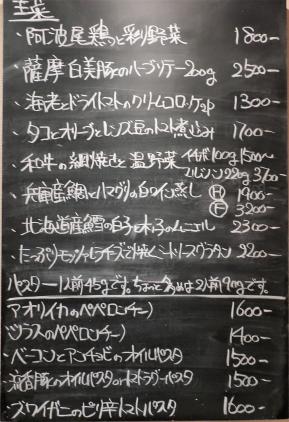 主菜
・阿波尾鶏と彩野菜 1800-
・薩摩白美豚のハーブソテー200g 2500-
・海老とドライトマトのクリームコロッケ2p 1300-
・タコとオリーブとレンズ豆のトマト煮込み 1700-
・和牛の網焼きと温野菜 イチボ100g 1500〜
220g 3700-
・兵庫産鯛とハマグリの白ワイン蒸し Ⓗ 1900-
Ⓕ 3200-
・北海道産鱈の白子と木子のムニエル 2300-
・たっぷりモッツァレラチーズのミートソースグラタン 2200-
パスタ 一人前45gです。ちょっと多めは2人前90gです。
アオリイカのペペロンチーノ 1600-
シラスのペペロンチーノ 1400-
・ベーコンとアンチョビのオイルパスタ 1500-
豚のオイルパスタorトマトラグーパスタ 1500-
ズワイガニのピリ辛トマトパスタ 1600-